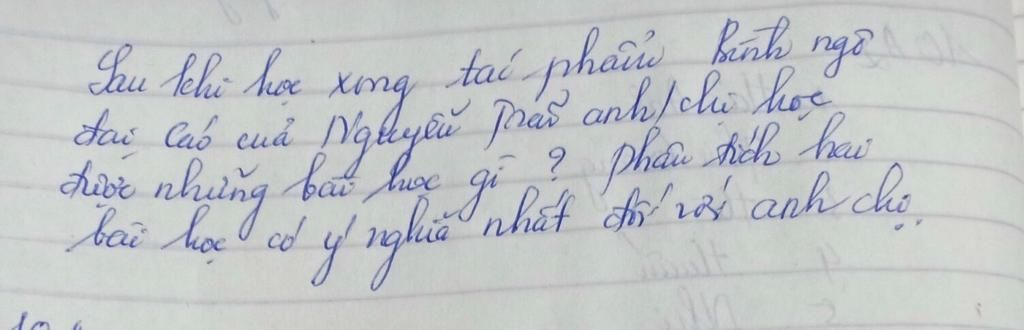 Sau khi học xong tác phẩm Bình ngô
đại cáo của Nguyễn Trãi anh/chị học
được những bài học gì ? phân tích hai
bài học có ý nghĩa nhất đối với anh chị.